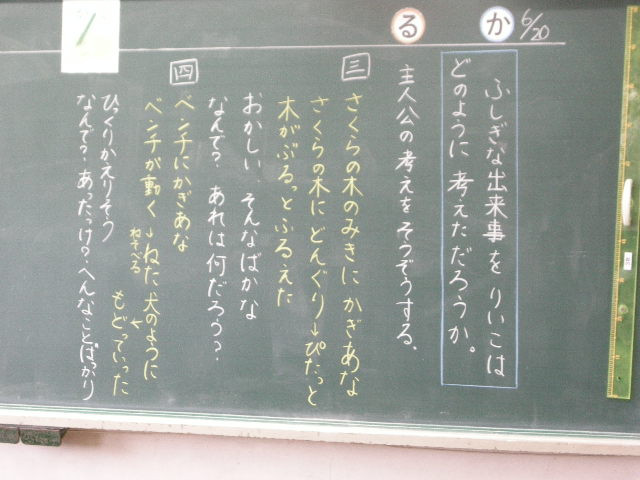 6/20
か
ふしぎな出来事をりいこは
どのように考えただろうか。
る
主人公の考えをそうぞうする。
三
さくらの木のみきにかぎあな
さくらの木にどんぐり→ぴたっと
木がぶるっとふるえた
おかしい、そんなばかな
なんで？あれは何だろう？
四
ベンチにかぎあな
ベンチが動く→ねた犬のように
ねそべる
もどっていった
ひっくりかえりそう
なんで？あったっけ？へんなことばっかり